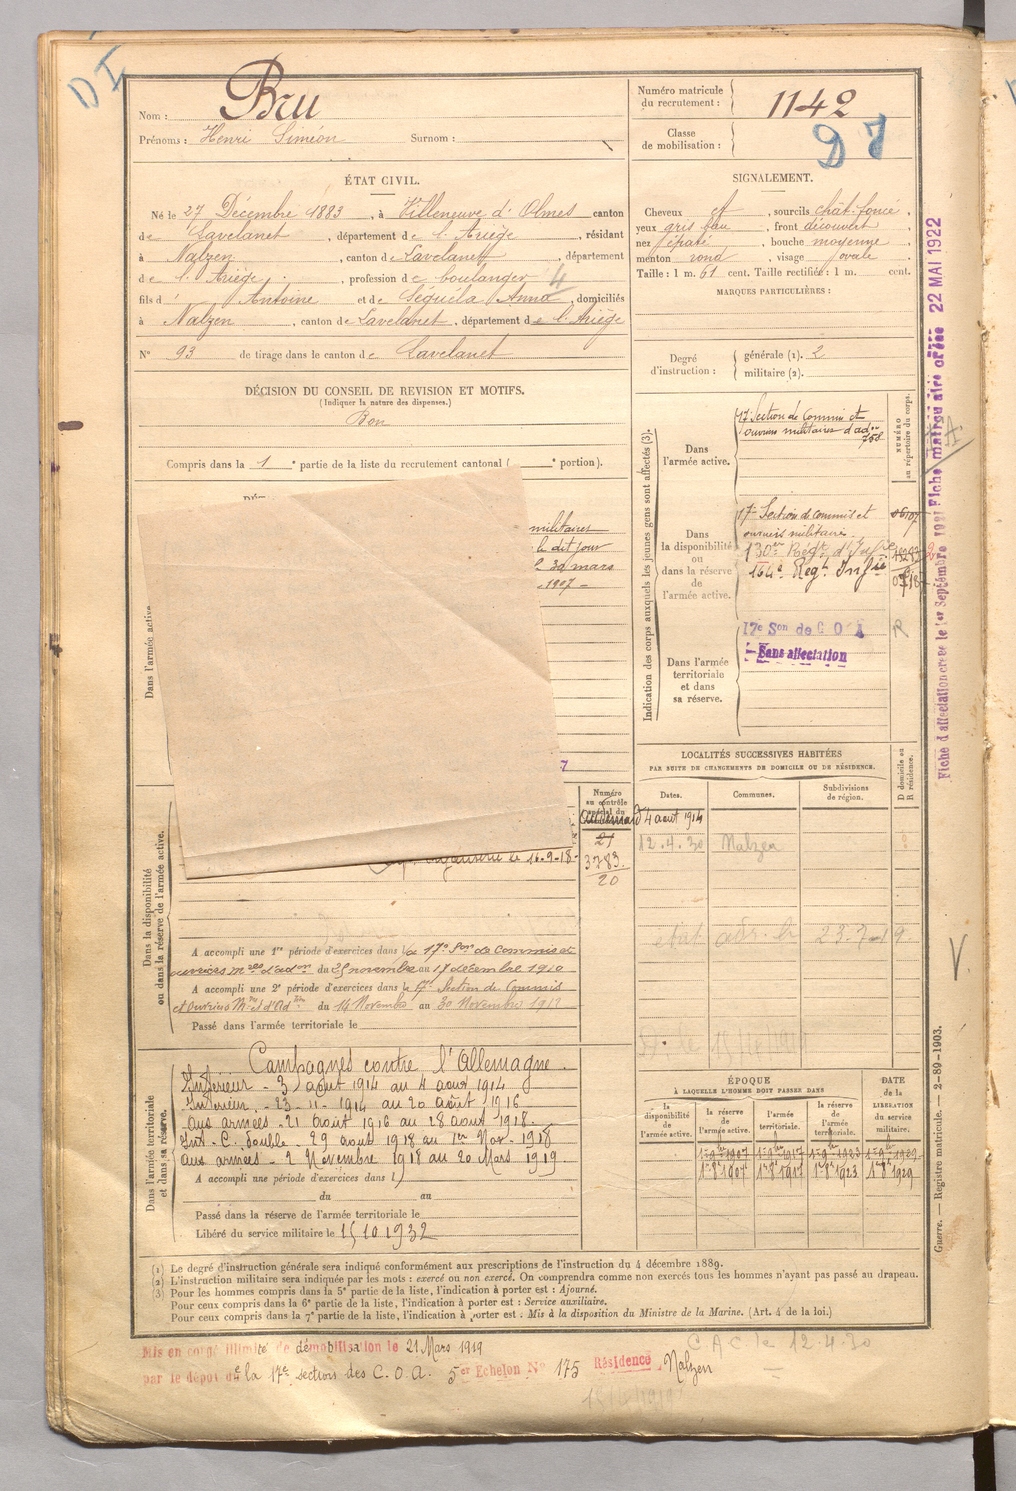 DI
Nom : Bru
Prénoms : Henri Siméon Surnom :
Numéro matricule du recrutement : 1142
Classe de mobilisation :
D 7
ÉTAT CIVIL.
Né le 27 Décembre 1883, à Villeneuve d'Olmes canton
de Lavelanet, département de l'Ariège, résidant
à Nalzen, canton de Lavelanet, département
de l'Ariège, profession de boulanger 4
fils d' Antoine et de Séguéla Anna, domiciliés
à Nalzen, canton de Lavelanet, département de l'Ariège
N° 93 de tirage dans le canton de Lavelanet
SIGNALEMENT.
Cheveux et, sourcils chât. foncé,
yeux gris bleu, front découvert
nez épaté, bouche moyenne
menton rond, visage ovale
Taille : 1 m. 61 cent. Taille rectifiée : 1 m. cent.
MARQUES PARTICULIÈRES :
DÉCISION DU CONSEIL DE REVISION ET MOTIFS.
(Indiquer la nature des dispenses.)
Bon
Compris dans la 1e partie de la liste du recrutement cantonal ( e portion).
Degré d'instruction : générale (1). 2
militaire (2).
Indication des corps auxquels les jeunes gens sont affectés (3).
NUMÉRO au répertoire du corps.
Dans l'armée active.
17e Section de Commis et
ouvriers militaires d'adon
758
Dans la disponibilité ou dans la réserve de l'armée active.
17e Section de commis et
ouvriers militaire
130e Régt d'Infie
164e Regt Infie
Dans l'armée territoriale et dans sa réserve.
17e Son de C O A R
Sans affectation
Dans l'armée active.
militaires
le dit jour
30 mars
1907
LOCALITÉS SUCCESSIVES HABITÉES
PAR SUITE DE CHANGEMENTS DE DOMICILE OU DE RÉSIDENCE.
D domicile ou R résidence.
Dates. Communes. Subdivisions de région.
4 aout 1914
12.4.30 Nalzen
Dans la disponibilité ou dans la réserve de l'armée active.
Numéro au contrôle spécial du
21
3783
20
le 16-9-18-
A accompli une 1re période d'exercices dans la 17e Son de Commis et
ouvriers mres d'adon du 25 novembre au 17 décembre 1910
A accompli une 2e période d'exercices dans le 17e Section de Commis
et Ouvriers Mres d'Adon du 14 Novembre au 30 Novembre 1912
Passé dans l'armée territoriale le
Dans l'armée territoriale et dans sa réserve.
Campagnes contre l'Allemagne.
Intérieur - 3 août 1914 au 4 aout 1914
Intérieur. - 23 - 11 - 1914 au 20 août 1916
aux armées - 21 août 1916 au 28 aout 1918.
Int. C. double - 29 aout 1918 au 1er Nov. 1918
aux armées - 2 Novembre 1918 au 20 Mars 1919
A accompli une période d'exercices dans l
du au
Passé dans la réserve de l'armée territoriale le
Libéré du service militaire le 15 10 1932
ÉPOQUE
À LAQUELLE L'HOMME DOIT PASSER DANS
DATE de la LIBÉRATION du service militaire.
la disponibilité de l'armée active. la réserve de l'armée active. l'armée territoriale. la réserve de l'armée territoriale.
1er 9bre 1907 1er 9bre 1917 1er 9bre 1923 1er 9bre 1929
1er 8bre 1907 1er 8bre 1917 1er 8bre 1923 1er 8bre 1929
(1) Le degré d'instruction générale sera indiqué conformément aux prescriptions de l'instruction du 4 décembre 1889.
(2) L'instruction militaire sera indiquée par les mots : exercé ou non exercé. On comprendra comme non exercés tous les hommes n'ayant pas passé au drapeau.
(3) Pour les hommes compris dans la 5e partie de la liste, l'indication à porter est : Ajourné.
Pour ceux compris dans la 6e partie de la liste, l'indication à porter est : Service auxiliaire.
Pour ceux compris dans la 7e partie de la liste, l'indication à porter est : Mis à la disposition du Ministre de la Marine. (Art. 4 de la loi.)
Mis en congé illimité de démobilisation le 21 Mars 1919
par le dépôt de la 17e section des C. O. A. 5er Echelon N° 175 Résidence Nalzen
C.A.C le 12.4.30
Guerre. — Registre matricule. — 2-89-1903.
Fiche d'affectation créée le 1er Septembre 1921 Fiche matriculaire créée 22 MAI 1922